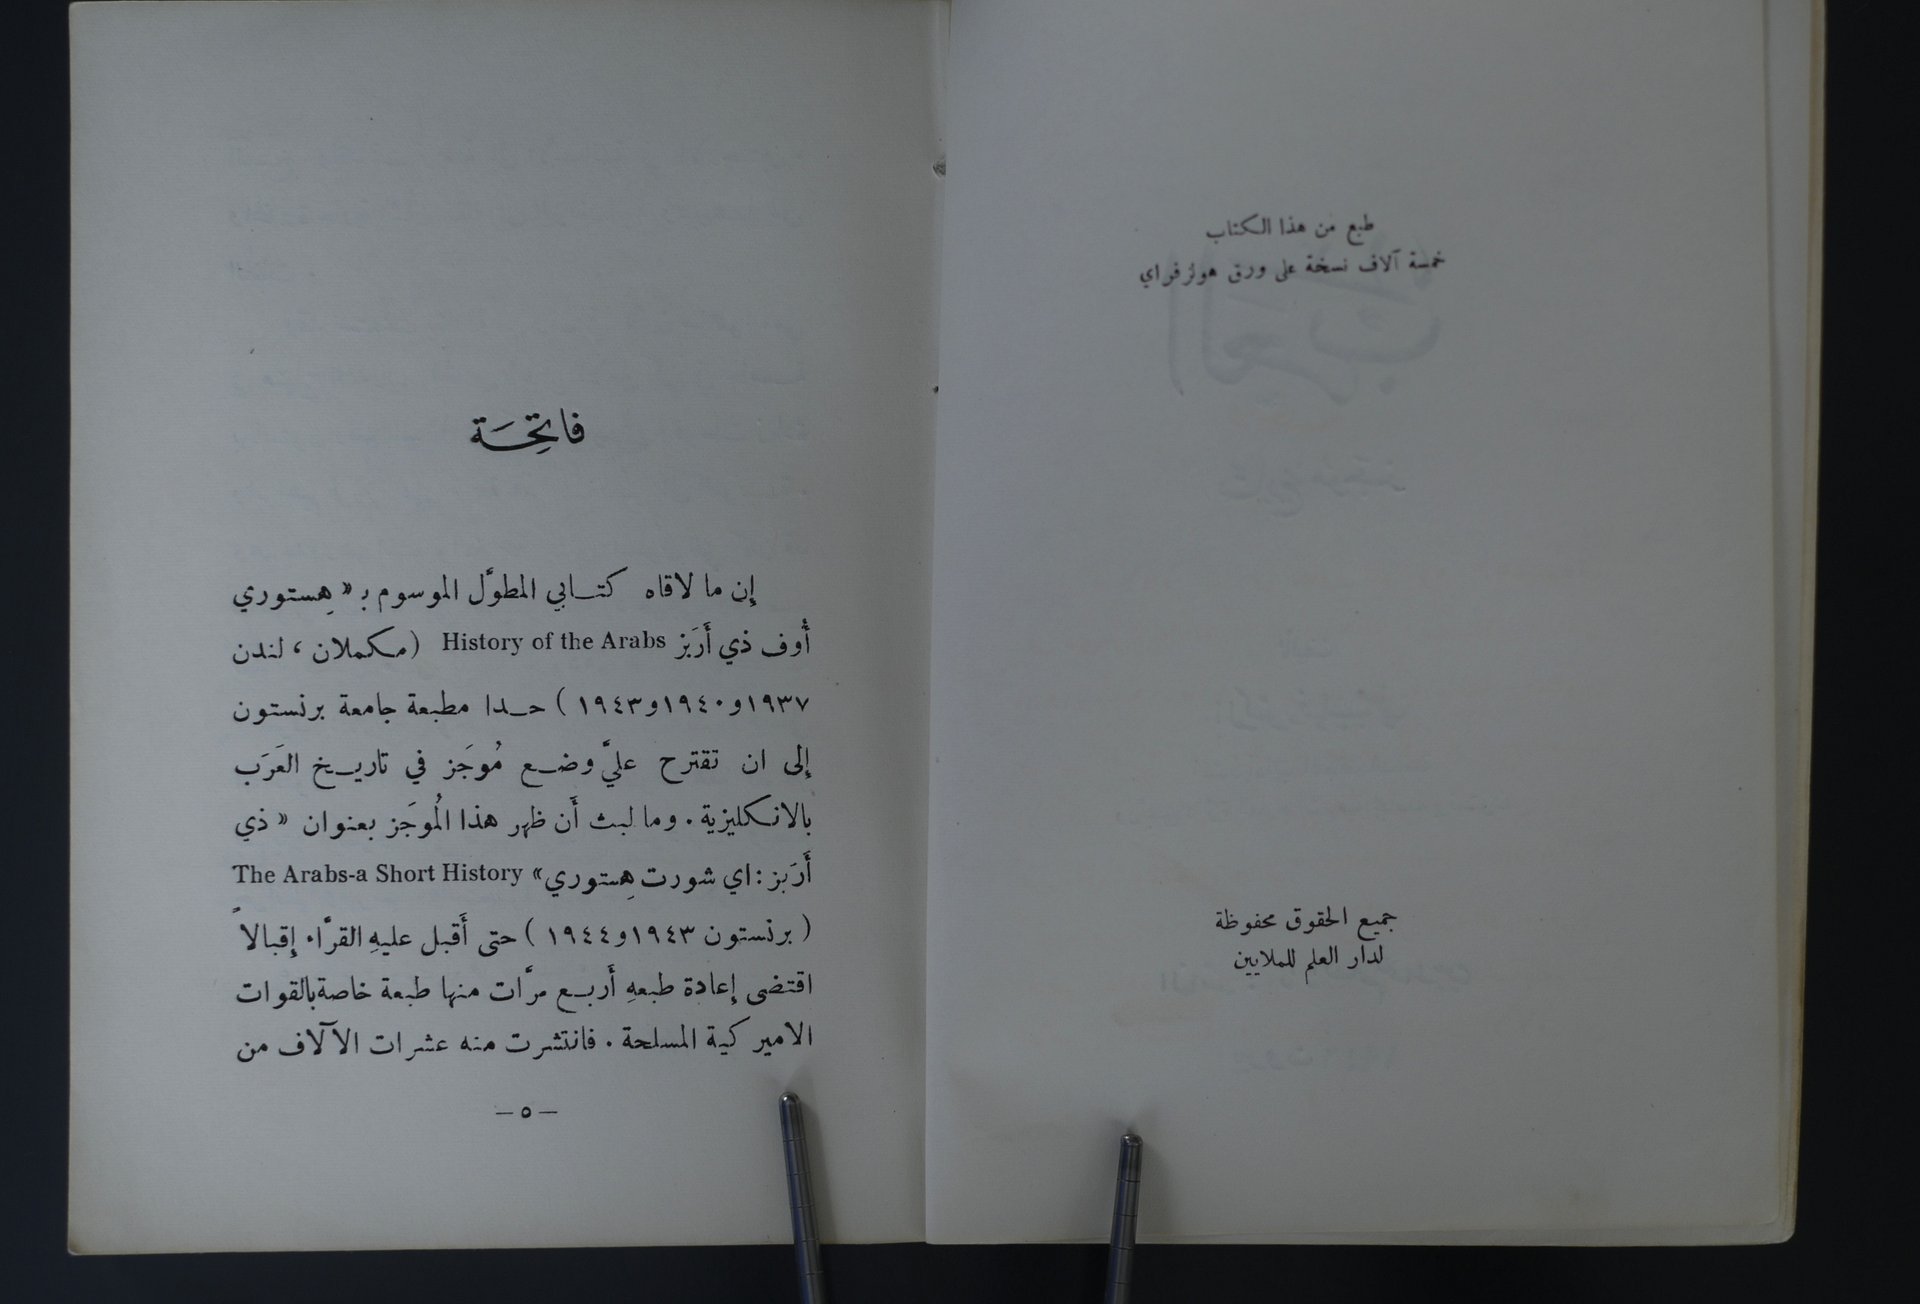 طبع من هذا الكتاب
خمسة آلاف نسخة على ورق هولزفراي
جميع الحقوق محفوظة
لدار العلم للملايين
فاتِحَة
إن ما لاقاه كتابي المطوَّل الموسوم بـ « هِستوري
أُوف ذي أَرَبز History of the Arabs (مكملان ، لندن
١٩٣٧ و١٩٤٠ و١٩٤٣ ) حدا مطبعة جامعة برنستون
إلى ان تقترح عليَّ وضع مُوجَز في تاريخ العَرَب
بالانكليزية . وما لبث أَن ظهر هذا المُوجَز بعنوان « ذي
أَرَبز : اي شورت هِستوري» The Arabs-a Short History
( برنستون ١٩٤٣ و١٩٤٤ ) حتى أَقبل عليهِ القرَّاء إِقبالاً
اقتضى إِعادة طبعهِ أَربع مرَّات منها طبعة خاصة بالقوات
الاميركية المسلحة . فانتشرت منه عشرات الآلاف من
— ٥ —